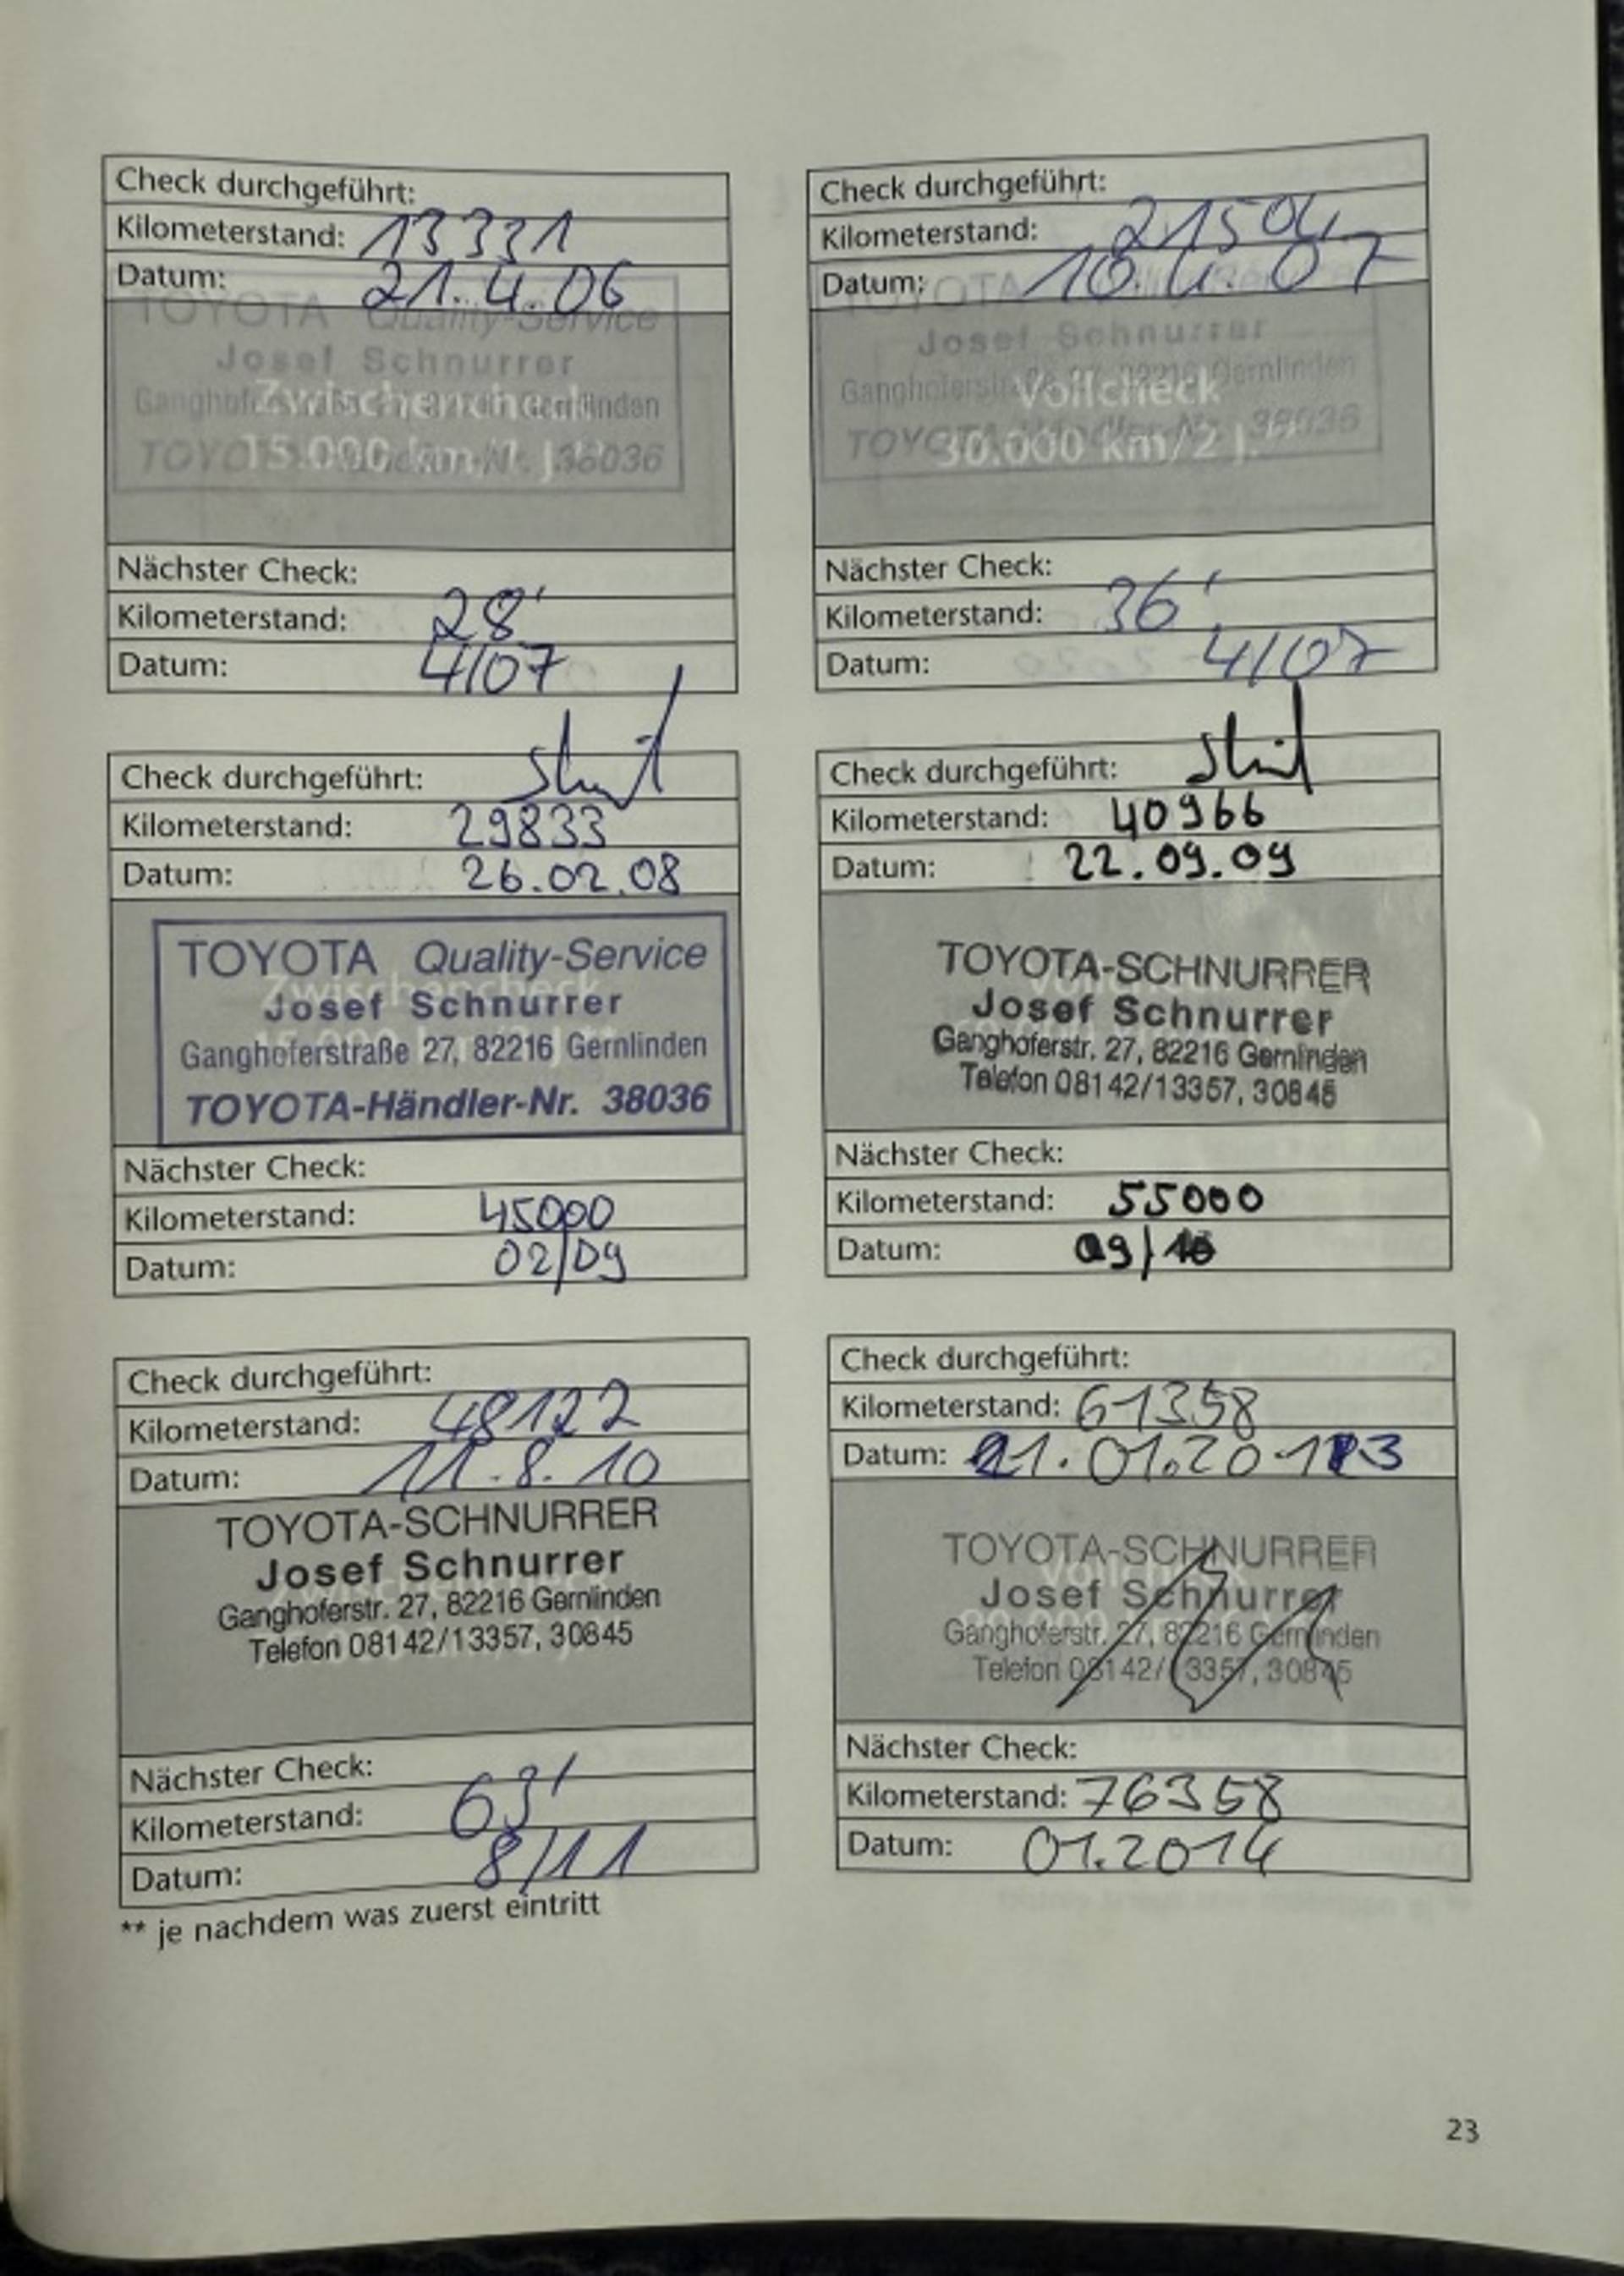 Check durchgeführt:
Kilometerstand: 13331
Datum: 21.4.06
TOYOTA Quality-Service
Josef Schnurrer
Zwischencheck
15.000 km/1 J.**
Nächster Check:
Kilometerstand: 28'
Datum: 4/07
Check durchgeführt:
Kilometerstand: 21504
Datum: 10.4.07
TOYOTA
Josef Schnurrer
Vollcheck
30.000 km/2 J.**
Nächster Check:
Kilometerstand: 36'
Datum: 4/07
Check durchgeführt:
Kilometerstand: 29833
Datum: 26.02.08
TOYOTA Quality-Service
Josef Schnurrer
Ganghoferstraße 27, 82216 Gernlinden
TOYOTA-Händler-Nr. 38036
Nächster Check:
Kilometerstand: 45000
Datum: 02/09
Check durchgeführt:
Kilometerstand: 40966
Datum: 22.09.09
TOYOTA-SCHNURRER
Josef Schnurrer
Ganghoferstr. 27, 82216 Gernlinden
Telefon 08142/13357, 30845
Nächster Check:
Kilometerstand: 55000
Datum: 09/10
Check durchgeführt:
Kilometerstand: 48122
Datum: 11.8.10
TOYOTA-SCHNURRER
Josef Schnurrer
Ganghoferstr. 27, 82216 Gernlinden
Telefon 08142/13357, 30845
Nächster Check:
Kilometerstand: 63'
Datum: 8/11
Check durchgeführt:
Kilometerstand: 61358
Datum: 21.01.2013
TOYOTA-SCHNURRER
Josef Schnurrer
Ganghoferstr. 27, 82216 Gernlinden
Telefon 08142/13357, 30845
Nächster Check:
Kilometerstand: 76358
Datum: 01.2014
** je nachdem was zuerst eintritt
23